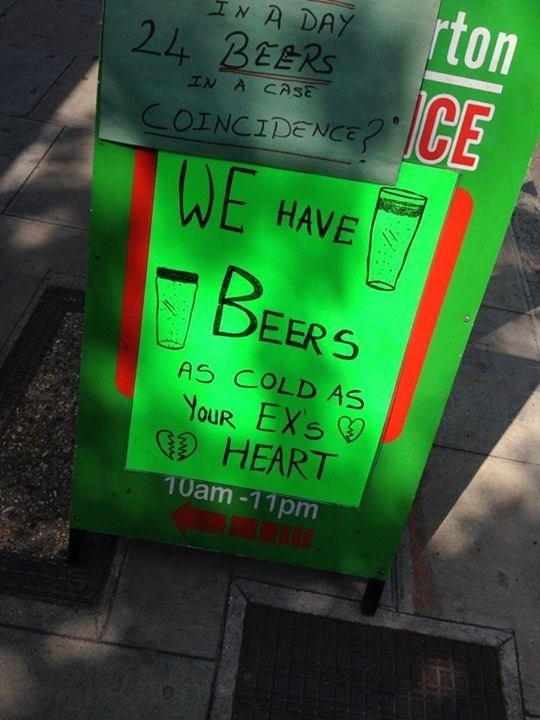 IN A DAY
24 BEERS
IN A CASE
COINCIDENCE?"
rton
ICE
WE HAVE
BEERS
AS COLD AS
YOUR EX'S
HEART
10am-11pm